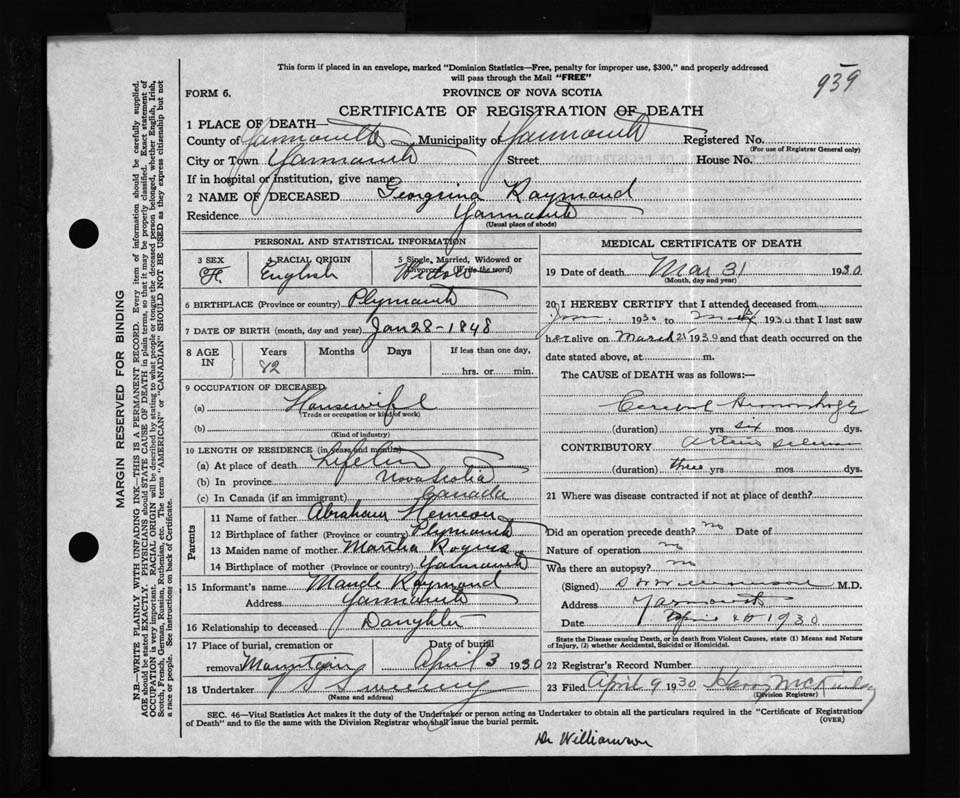 This form if placed in an envelope, marked "Dominion Statistics—Free, penalty for improper use, $300," and properly addressed
will pass through the Mail "FREE"
939
FORM 6.
PROVINCE OF NOVA SCOTIA
CERTIFICATE OF REGISTRATION OF DEATH
1 PLACE OF DEATH—
County of Yarmouth Municipality of Yarmouth Registered No.
(For use of Registrar General only)
City or Town Yarmouth Street House No.
If in hospital or Institution, give name
2 NAME OF DECEASED Georgina Raymond
Residence Yarmouth
(Usual place of abode)
PERSONAL AND STATISTICAL INFORMATION
3 SEX 4 RACIAL ORIGIN 5 Single, Married, Widowed or
Divorced (Write the word)
F. English Widow
6 BIRTHPLACE (Province or country) Plymouth
7 DATE OF BIRTH (month, day and year) Jan 28 - 1848
8 AGE IN Years Months Days If less than one day,
82 hrs. or min.
9 OCCUPATION OF DECEASED
(a) Housewife
(Trade or occupation or kind of work)
(b)
(Kind of industry)
10 LENGTH OF RESIDENCE (in years and months)
(a) At place of death Life
(b) In province Nova Scotia
(c) In Canada (if an immigrant) Canada
Parents
11 Name of father Abraham Hemeon
12 Birthplace of father (Province or country) Plymouth
13 Maiden name of mother Martha Rogers
14 Birthplace of mother (Province or country) Yarmouth
15 Informant's name Maude Raymond
Address Yarmouth
16 Relationship to deceased Daughter
17 Place of burial, cremation or Date of burial
removal Mountain April 3 1930
18 Undertaker V S Sweeny
(Name and address)
MEDICAL CERTIFICATE OF DEATH
19 Date of death Mar 31 1930
(Month, day and year)
20 I HEREBY CERTIFY that I attended deceased from
1930 to 1930 that I last saw
her alive on March 1930 and that death occurred on the
date stated above, at m.
The CAUSE of DEATH was as follows:—
Cerebral Hemorrhage
(duration) yrs six mos. dys.
CONTRIBUTORY Arterio
(duration) three yrs mos. dys.
21 Where was disease contracted if not at place of death?
Did an operation precede death? no Date of
Nature of operation no
Was there an autopsy? no
(Signed) Williamson M.D.
Address Yarmouth
Date 1930
State the Disease causing Death, or in death from Violent Causes, state (1) Means and Nature
of Injury, (2) whether Accidental, Suicidal or Homicidal.
22 Registrar's Record Number
23 Filed April 9 1930 Harry McKinlay
(Division Registrar)
SEC. 46—Vital Statistics Act makes it the duty of the Undertaker or person acting as Undertaker to obtain all the particulars required in the "Certificate of Registration
of Death" and to file the same with the Division Registrar who shall issue the burial permit.
(OVER)
Dr Williamson
MARGIN RESERVED FOR BINDING
N.B.—WRITE PLAINLY WITH UNFADING INK—THIS IS A PERMANENT RECORD. Every item of information should be carefully supplied.
AGE should be stated EXACTLY. PHYSICIANS should STATE CAUSE OF DEATH in plain terms, so that it may be properly classified. Exact statement of
OCCUPATION is very important. RACIAL ORIGIN will be described by stating to what people or tongue the deceased person belonged, whether English, Irish,
Scotch, French, German, Russian, Ruthenian, etc. The terms "AMERICAN" or "CANADIAN" SHOULD NOT BE USED as they express citizenship but not
a race or people. See instructions on back of Certificate.